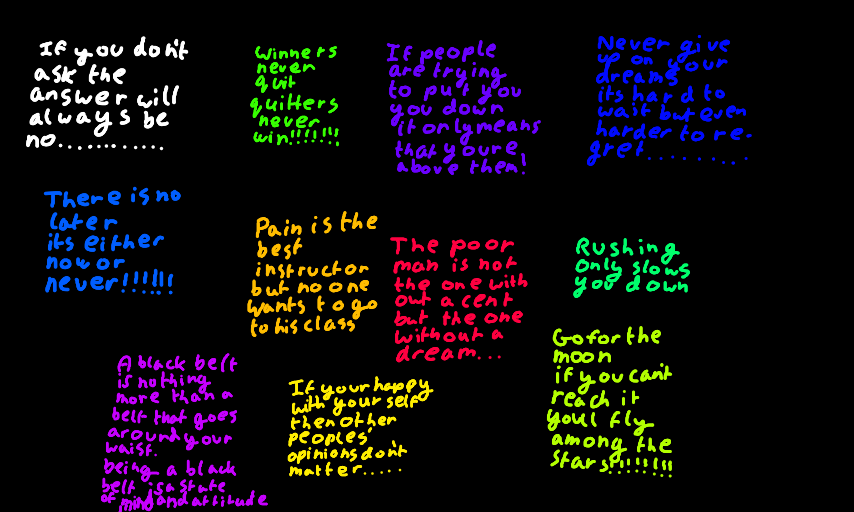 If you don't
ask the
answer will
always be
no............
Winners
never
quit
quitters
never
win!!!!!!!
If people
are trying
to put you
you down
it only means
that youre
above them!
Never give
up on your
dreams
its hard to
wait but even
harder to re-
gret.........
There is no
later
its either
now or
never!!!!!!
Pain is the
best
instructor
but no one
wants to go
to his class
The poor
man is not
the one with
out a cent
but the one
without a
dream...
Rushing
only slows
you down
A black belt
is nothing
more than a
belt that goes
around your
waist.
being a black
belt is a state
of mind and attitude
If your happy
with your self
then other
peoples'
opinions don't
matter.....
Go for the
moon
if you can't
reach it
youl fly
among the
stars!!!!!!!!